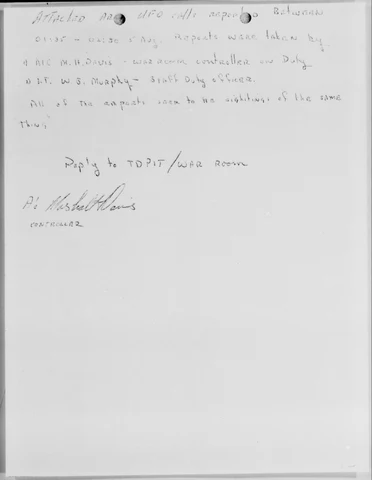 Attached are UFO calls reported Between
Aug. Reports were taken by
A/1C M.H. Davis - War Room controller on Duty
W J. Murphy - Staff Duty Officer.
All of the reports seem to be sightings of the same
thing
Reply to TDPIT/WAR ROOM
Marshall H Davis
CONTROLLER